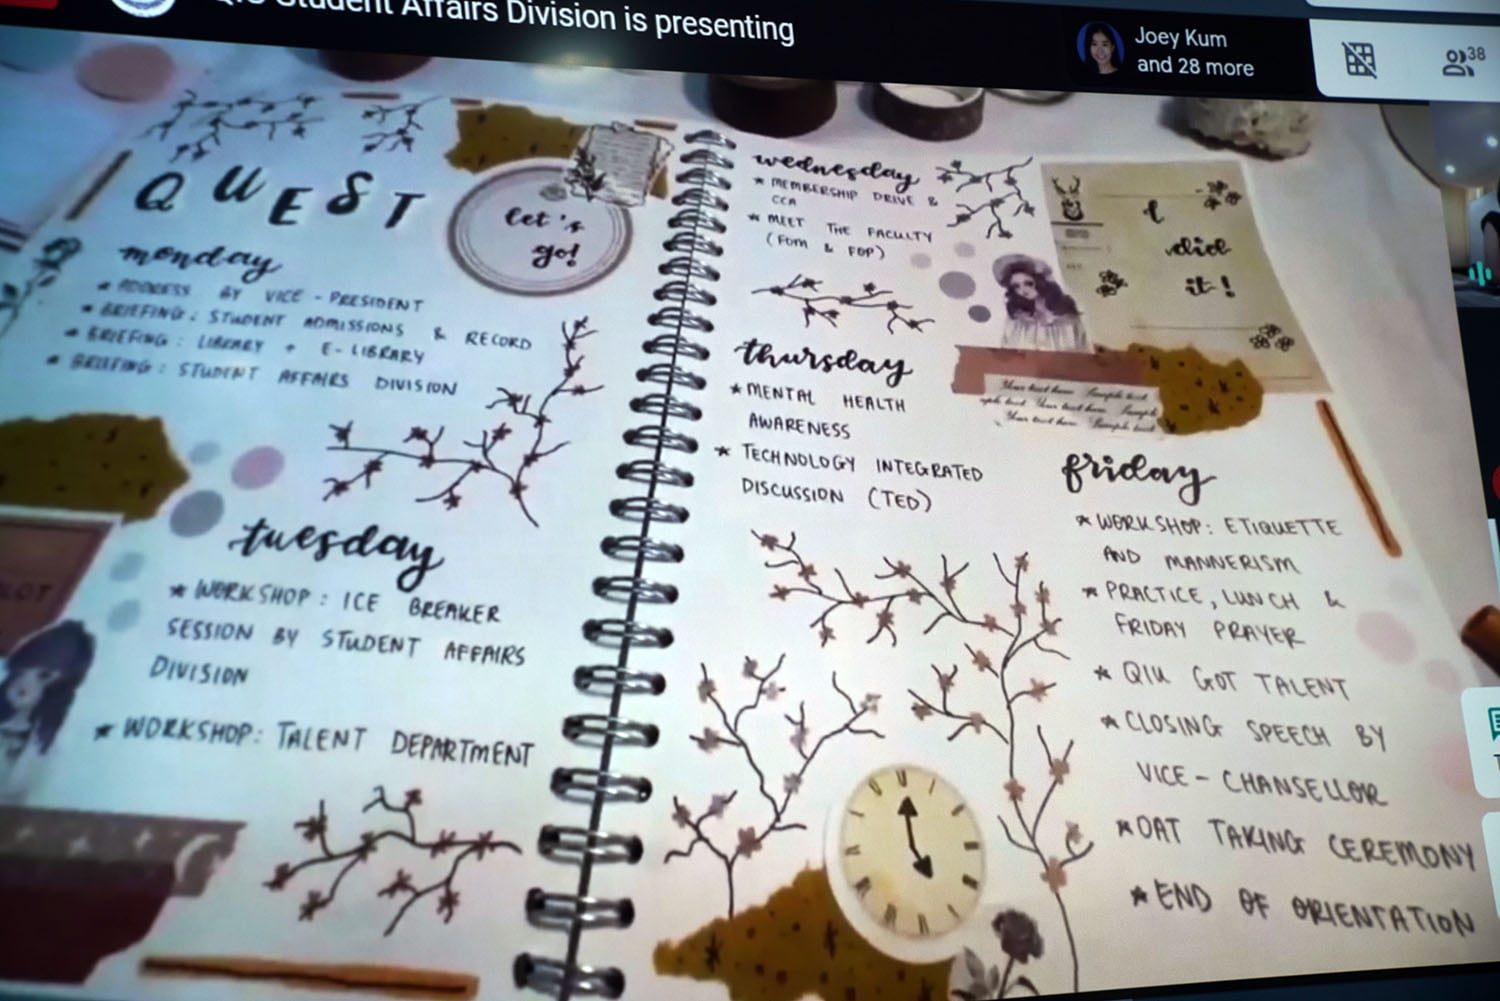 Student Affairs Division is presenting
Joey Kum
and 28 more
38
QUEST
let's
go!
monday
* ADDRESS BY VICE - PRESIDENT
* BRIEFING: STUDENT ADMISSIONS & RECORD
* BRIEFING: LIBRARY + E-LIBRARY
* BRIEFING: STUDENT AFFAIRS DIVISION
tuesday
* WORKSHOP: ICE BREAKER
SESSION BY STUDENT AFFAIRS
DIVISION
* WORKSHOP: TALENT DEPARTMENT
wednesday
* MEMBERSHIP DRIVE &
CCA
* MEET THE FACULTY
(FOM & FOP)
I
did
it!
thursday
* MENTAL HEALTH
AWARENESS
* TECHNOLOGY INTEGRATED
DISCUSSION (TED)
Your text here Sample text
Your text here Sample
Your text here Sample text
friday
* WORKSHOP: ETIQUETTE
AND MANNERISM
* PRACTICE, LUNCH &
FRIDAY PRAYER
* QIU GOT TALENT
* CLOSING SPEECH BY
VICE - CHANSELLOR
* OAT TAKING CEREMONY
* END OF ORIENTATION